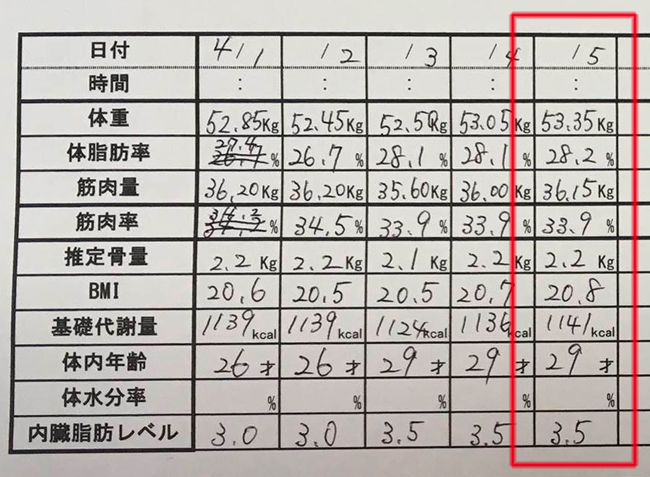 日付 4/1 /2 /3 /4 /5
時間 : : : : :
体重 52.85Kg 52.45Kg 52.50Kg 53.05Kg 53.35Kg
体脂肪率 27.4 % 26.7 % 28.1 % 28.1 % 28.2 %
筋肉量 36.20Kg 36.20Kg 35.60Kg 36.00Kg 36.15Kg
筋肉率 % 34.5 % 33.9 % 33.9 % 33.9 %
推定骨量 2.2 Kg 2.2 Kg 2.1 Kg 2.2 Kg 2.2 Kg
BMI 20.6 20.5 20.5 20.7 20.8
基礎代謝量 1139kcal 1139kcal 1124kcal 1136kcal 1141kcal
体内年齢 26 才 26 才 29 才 29 才 29 才
体水分率 % % % % %
内臓脂肪レベル 3.0 3.0 3.5 3.5 3.5